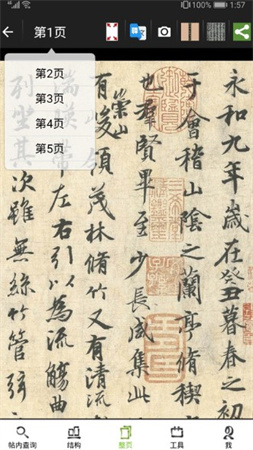 1:57
第1页
第2页
第3页
第4页
第5页
永和九年歲在癸丑暮春之初
于會稽山陰之蘭亭脩稧
也羣賢畢至少長咸集此
有崇山
峻領茂林脩竹又有清流
帶左右引以為流觴曲
列坐其次雖無絲竹管弦
帖内查询
结构
整页
工具
我